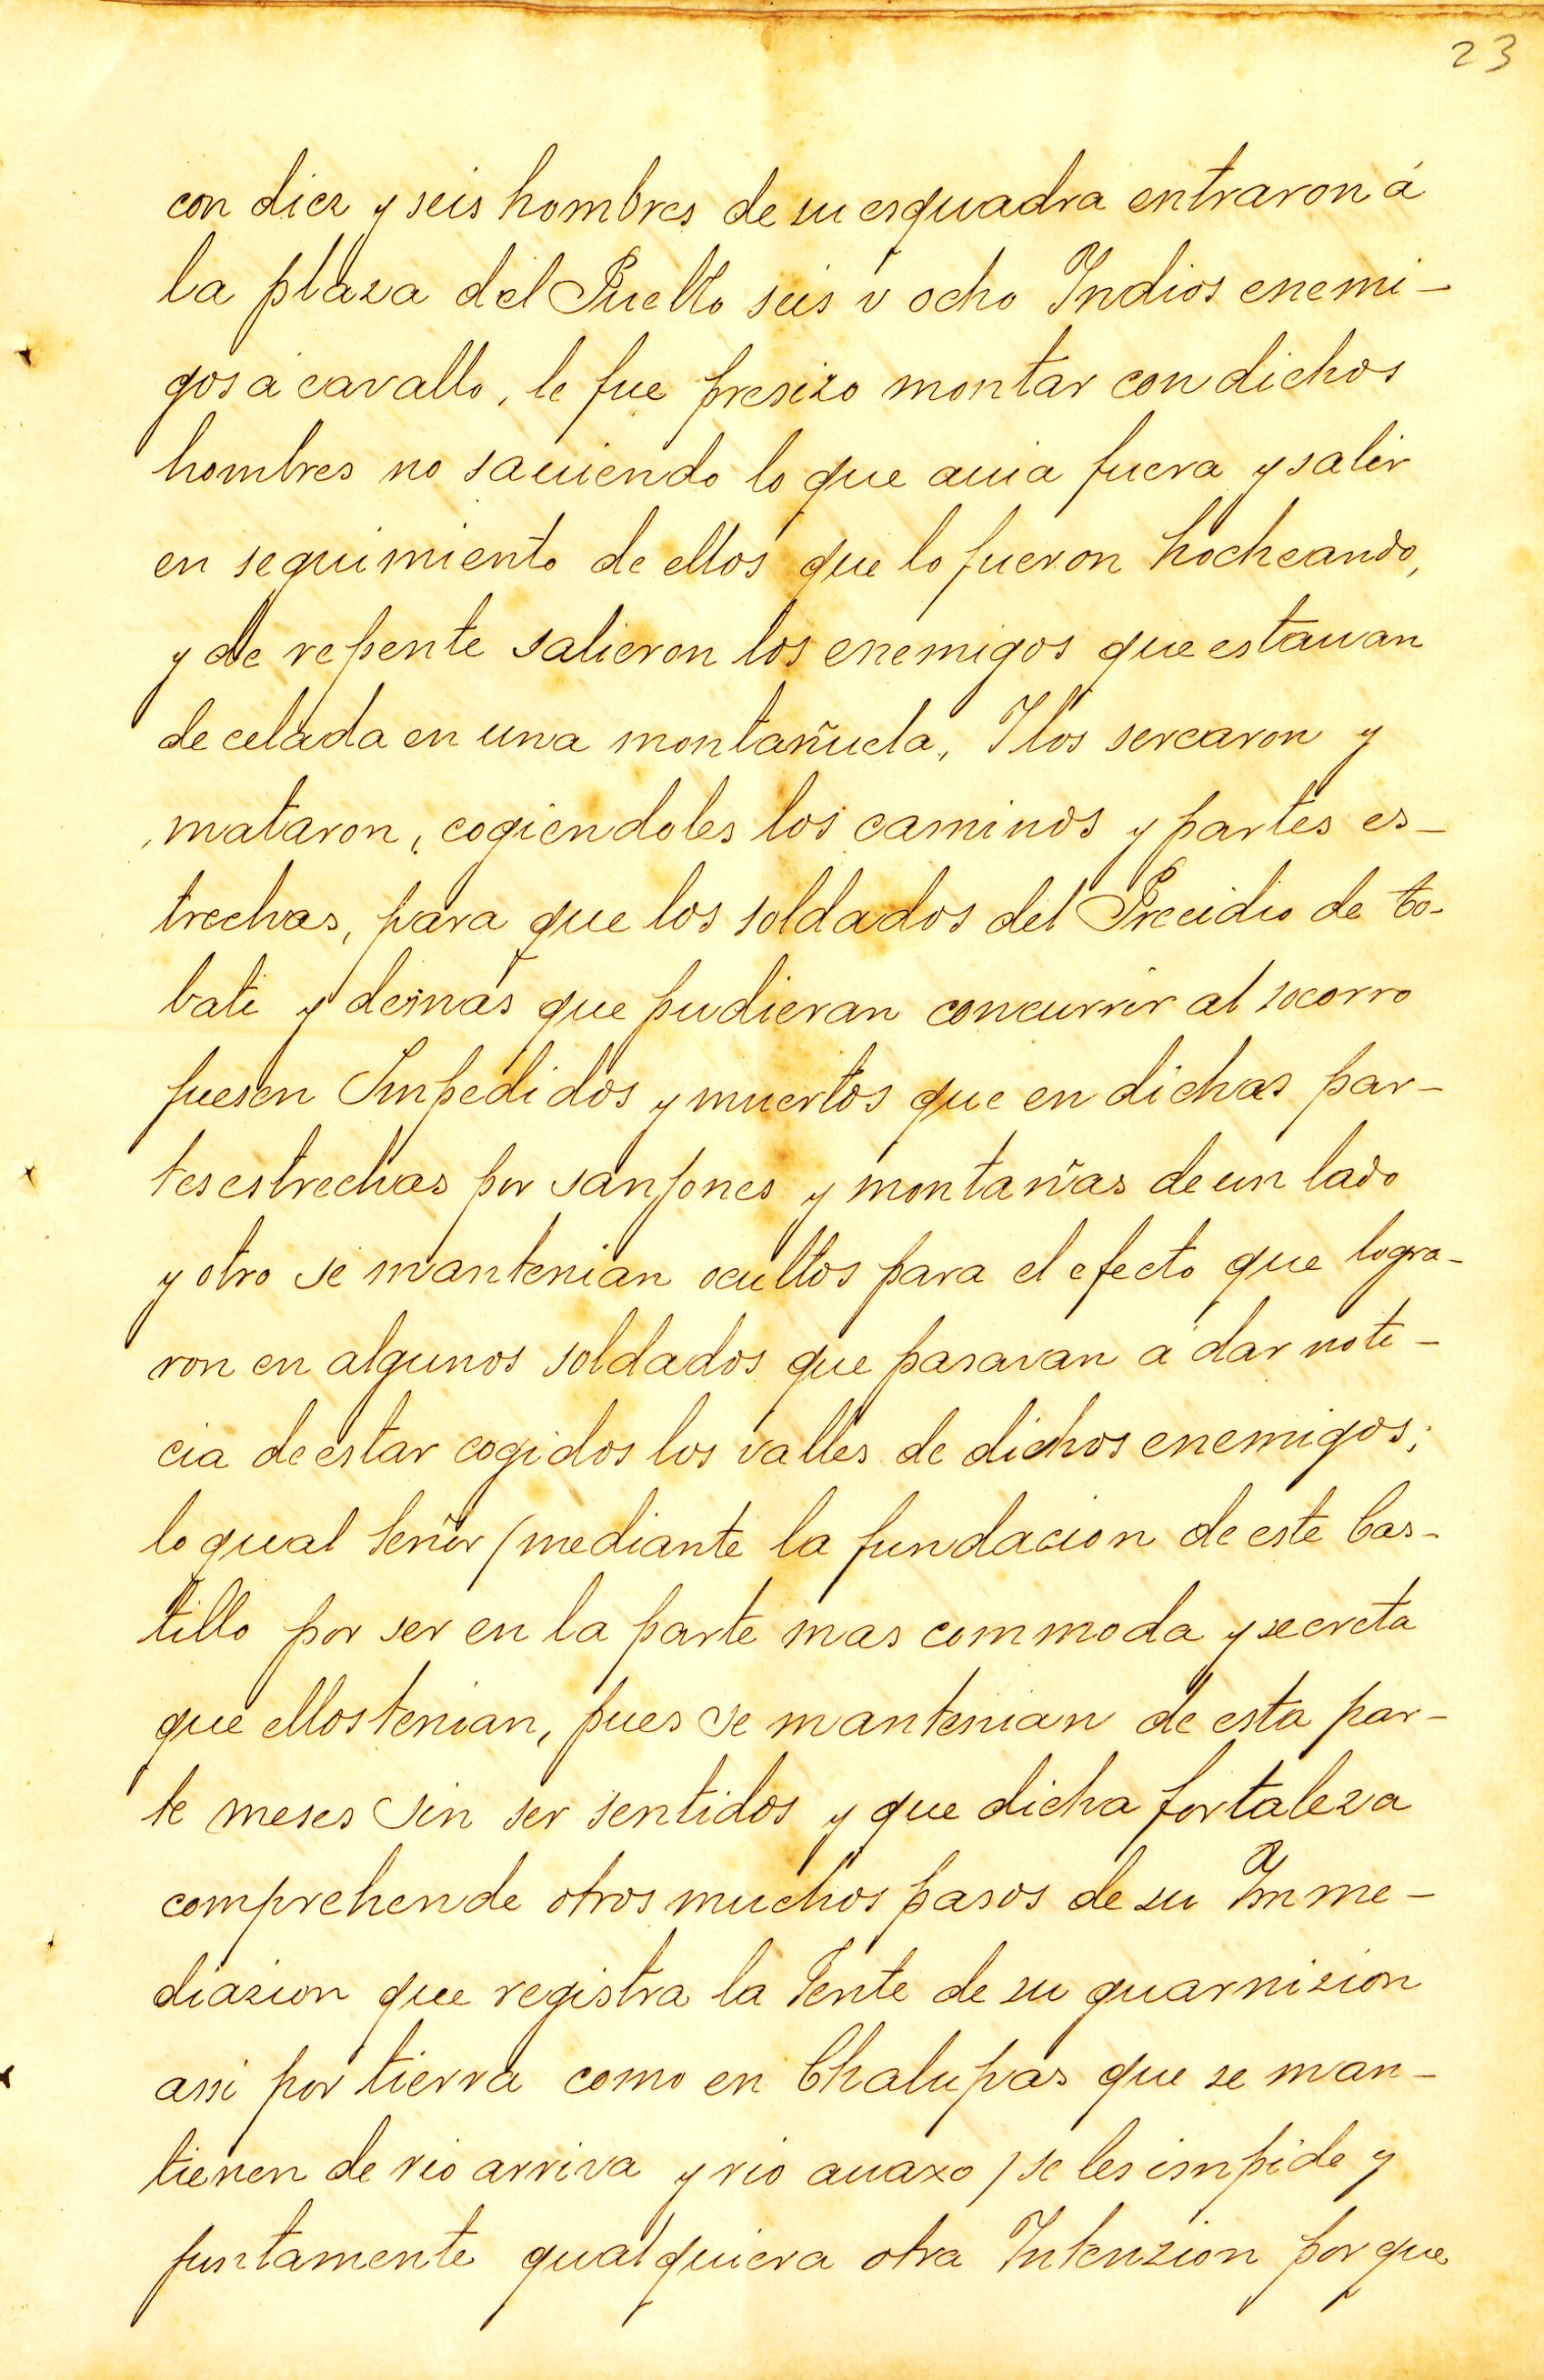 23
con diez y seis hombres de su esquadra entraron á
la plaza del Puelto seis v ocho Indios enemi-
gos á cavallo, le fue presizo montar con dichos
hombres no sauiendo lo que auia fuera y salir
en seguimiento de ellos que lo fueron hocheando,
y de repente salieron los enemigos que estauan
de celada en una montañuela, Ilos sercaron y
mataron, cogiendoles los caminos y partes es-
trechas, para que los soldados del Precidio de to-
bati y demás que pudieran concurrir al socorro
fuesen Impedidos y muertos que en dichas par-
tes estrechas por sanjones y montañas de un lado
y otro se mantenian ocultos para el efecto que logra-
ron en algunos soldados que pasavan á dar noti-
cia de estar cogidos los valles de dichos enemigos;
lo qual señor (mediante la fundacion de este Cas-
tillo por ser en la parte mas commoda y secreta
que ellos tenian, pues se mantenian de esta par-
te meses sin ser sentidos y que dicha fortaleza
comprehende otros muchos pasos de su Inme-
diazion que registra la Jente de su guarnizion
assi por tierra como en Chalupas que se man-
tienen de rio arriva y rio auaxo) se les impide y
juntamente qualquiera otra Intenzion por que